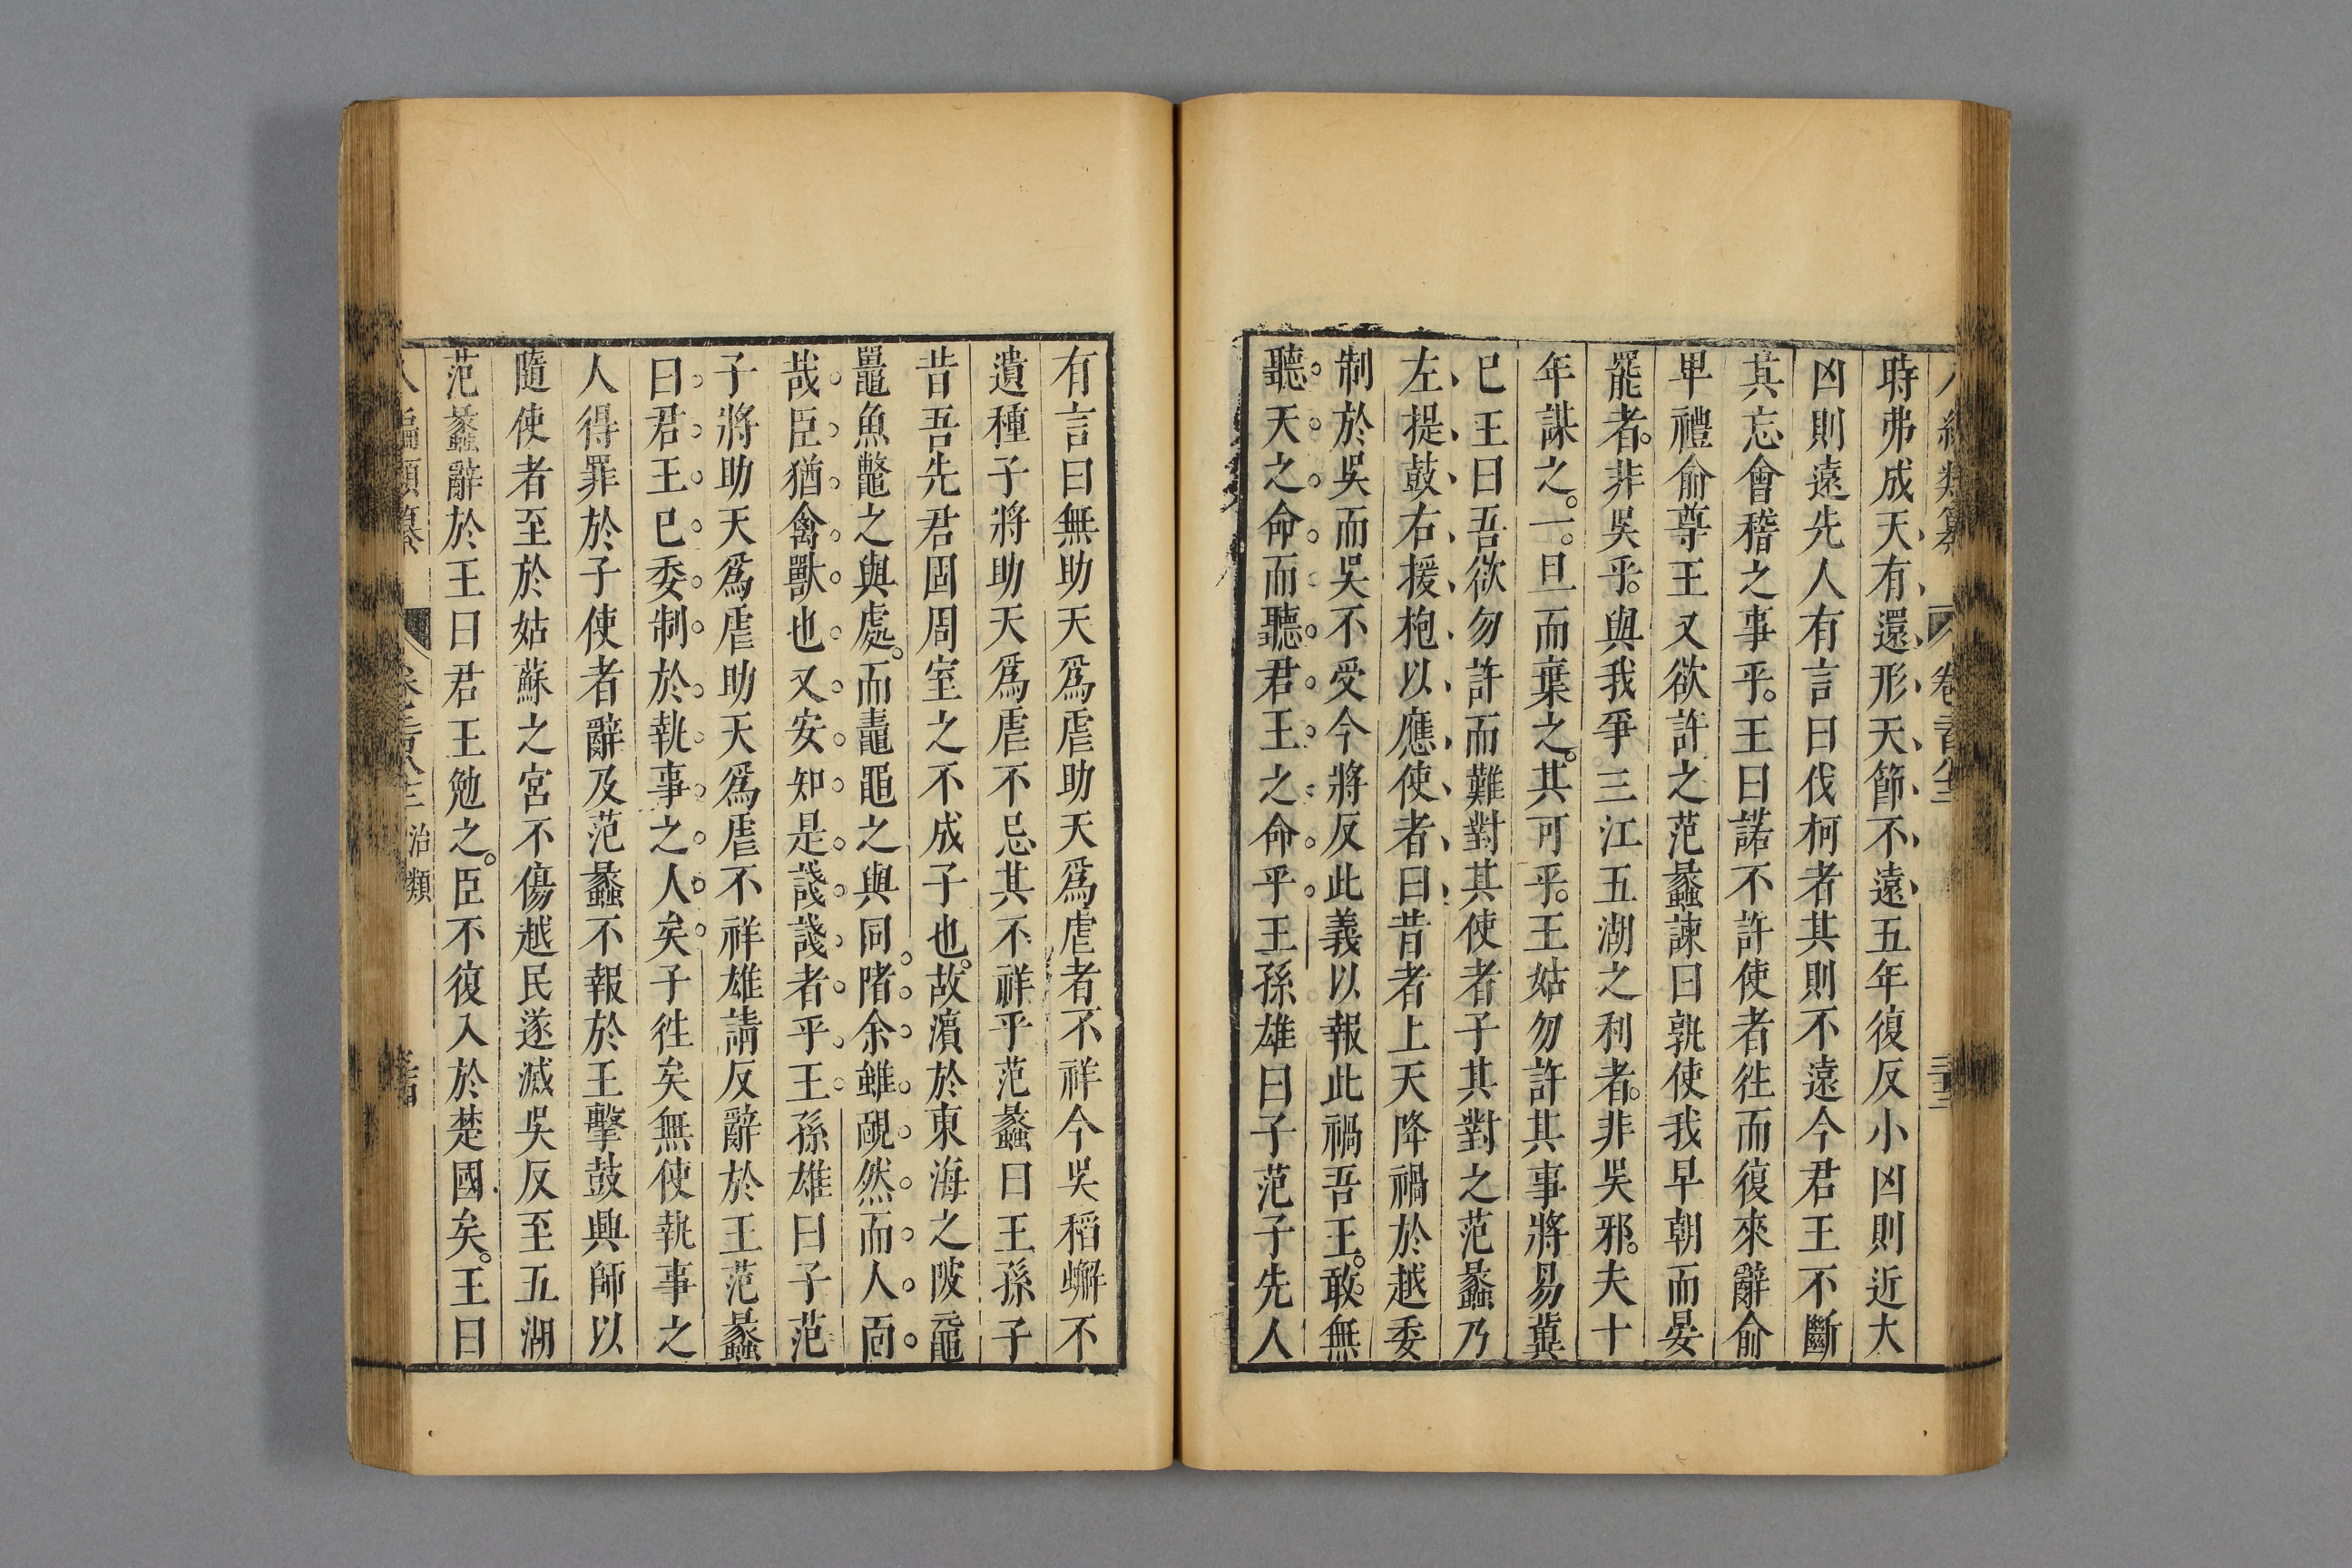 時弗成天有還形天節不遠五年復反小凶則近大
凶則遠先人有言曰伐柯者其則不遠今君王不斷
其忘會稽之事乎。王曰諾不許使者徃而復來辭俞
卑禮俞尊王又欲許之范蠡諫曰孰使我早朝而晏
罷者。非吳乎。與我爭三江五湖之利者。非吳邪。夫十
年謀之。一。旦而棄之。其可乎。王姑勿許其事將易冀
已王曰吾欲勿許而難對其使者子其對之范蠡乃
左提鼓右援枹以應使者曰昔者上天降禍於越委
制於吳而吳不受今將反此義以報此禍吾王。敢無
聽天之命而聽君王之命乎王孫雄曰子范子先人
有言曰無助天爲虐助天爲虐者不祥今吳稻蠏不
遺種子將助天爲虐不忌其不祥乎范蠡曰王孫子
昔吾先君固周室之不成子也。故濵於東海之陂黿
鼉魚鼈之與處。而鼃黽之與同陼余雖靦然而人面
哉臣猶禽獸也又安知是諓諓者乎王孫雄曰子范
子將助天爲虐助天爲虐不祥雄請反辭於王范蠡
曰君王已委制於執事之人矣子徃矣無使執事之
人得罪於子使者辭及范蠡不報於王擊鼓興師以
隨使者至於姑蘇之宮不傷越民遂滅吳反至五湖
范蠡辭於王曰君王勉之。臣不復入於楚國矣。王曰
八編類纂 治類